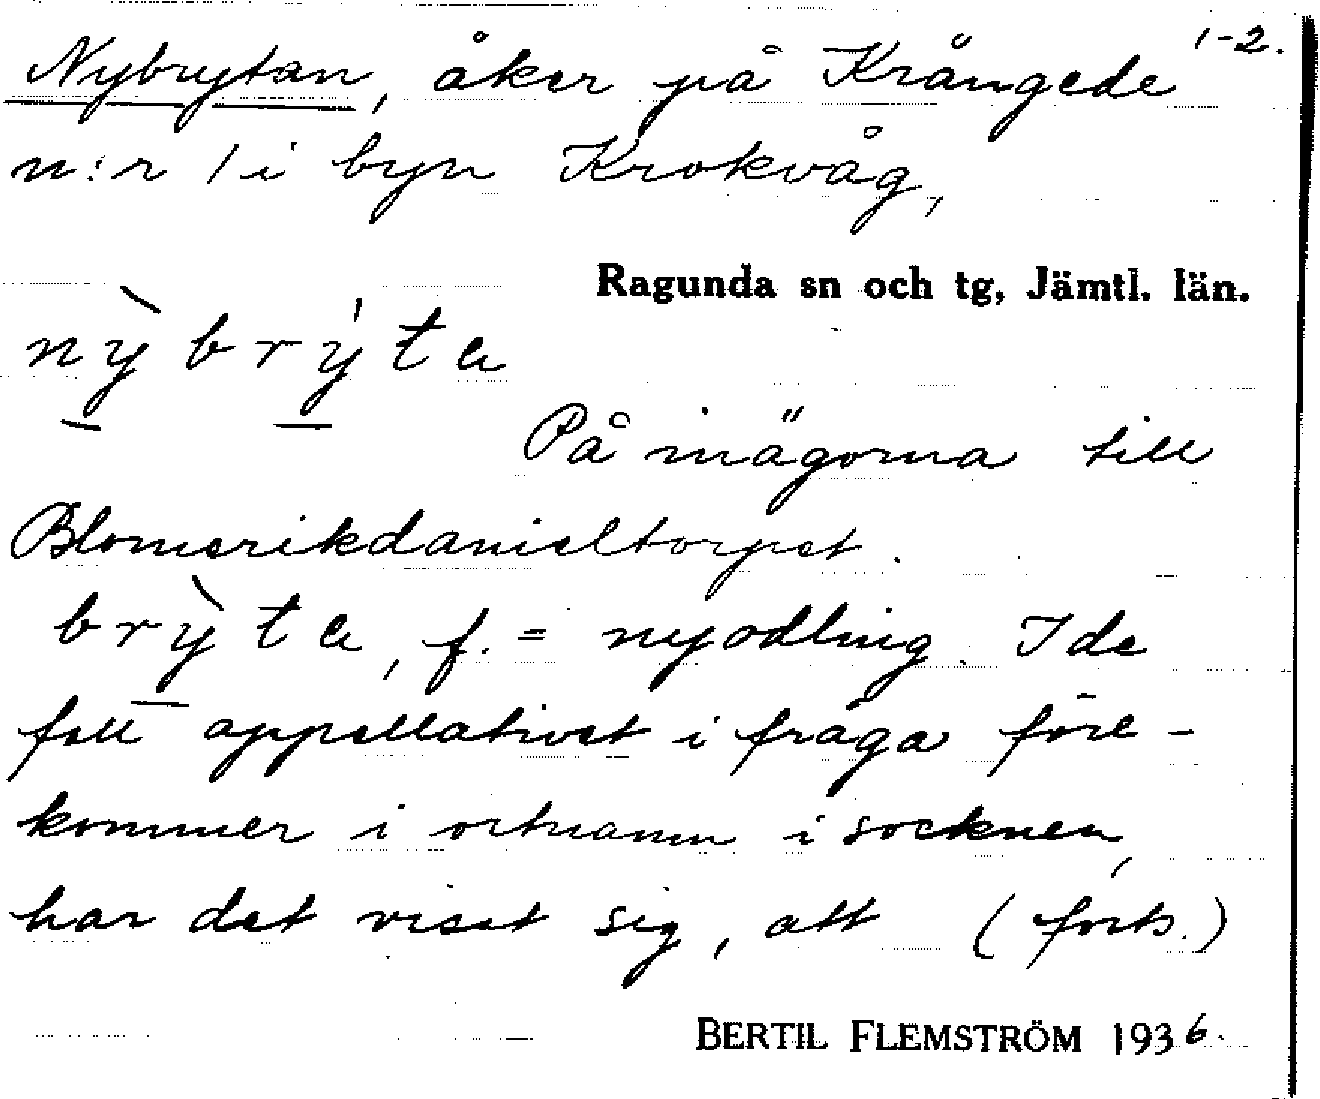 1-2.
Nybrytan, åker på Krångede
n:r 1 i byn Krokvåg,
Ragunda sn och tg, Jämtl. län.
nỳ̠brý̠ta
På inägorna till
Blomerikdanieltorpet.
brỳ̠ta, f. = nyodling. I de
fall appellativet i fråga före-
kommer i ortnamn i socknen,
har det visat sig, att (forts.)
BERTIL FLEMSTRÖM 1936.